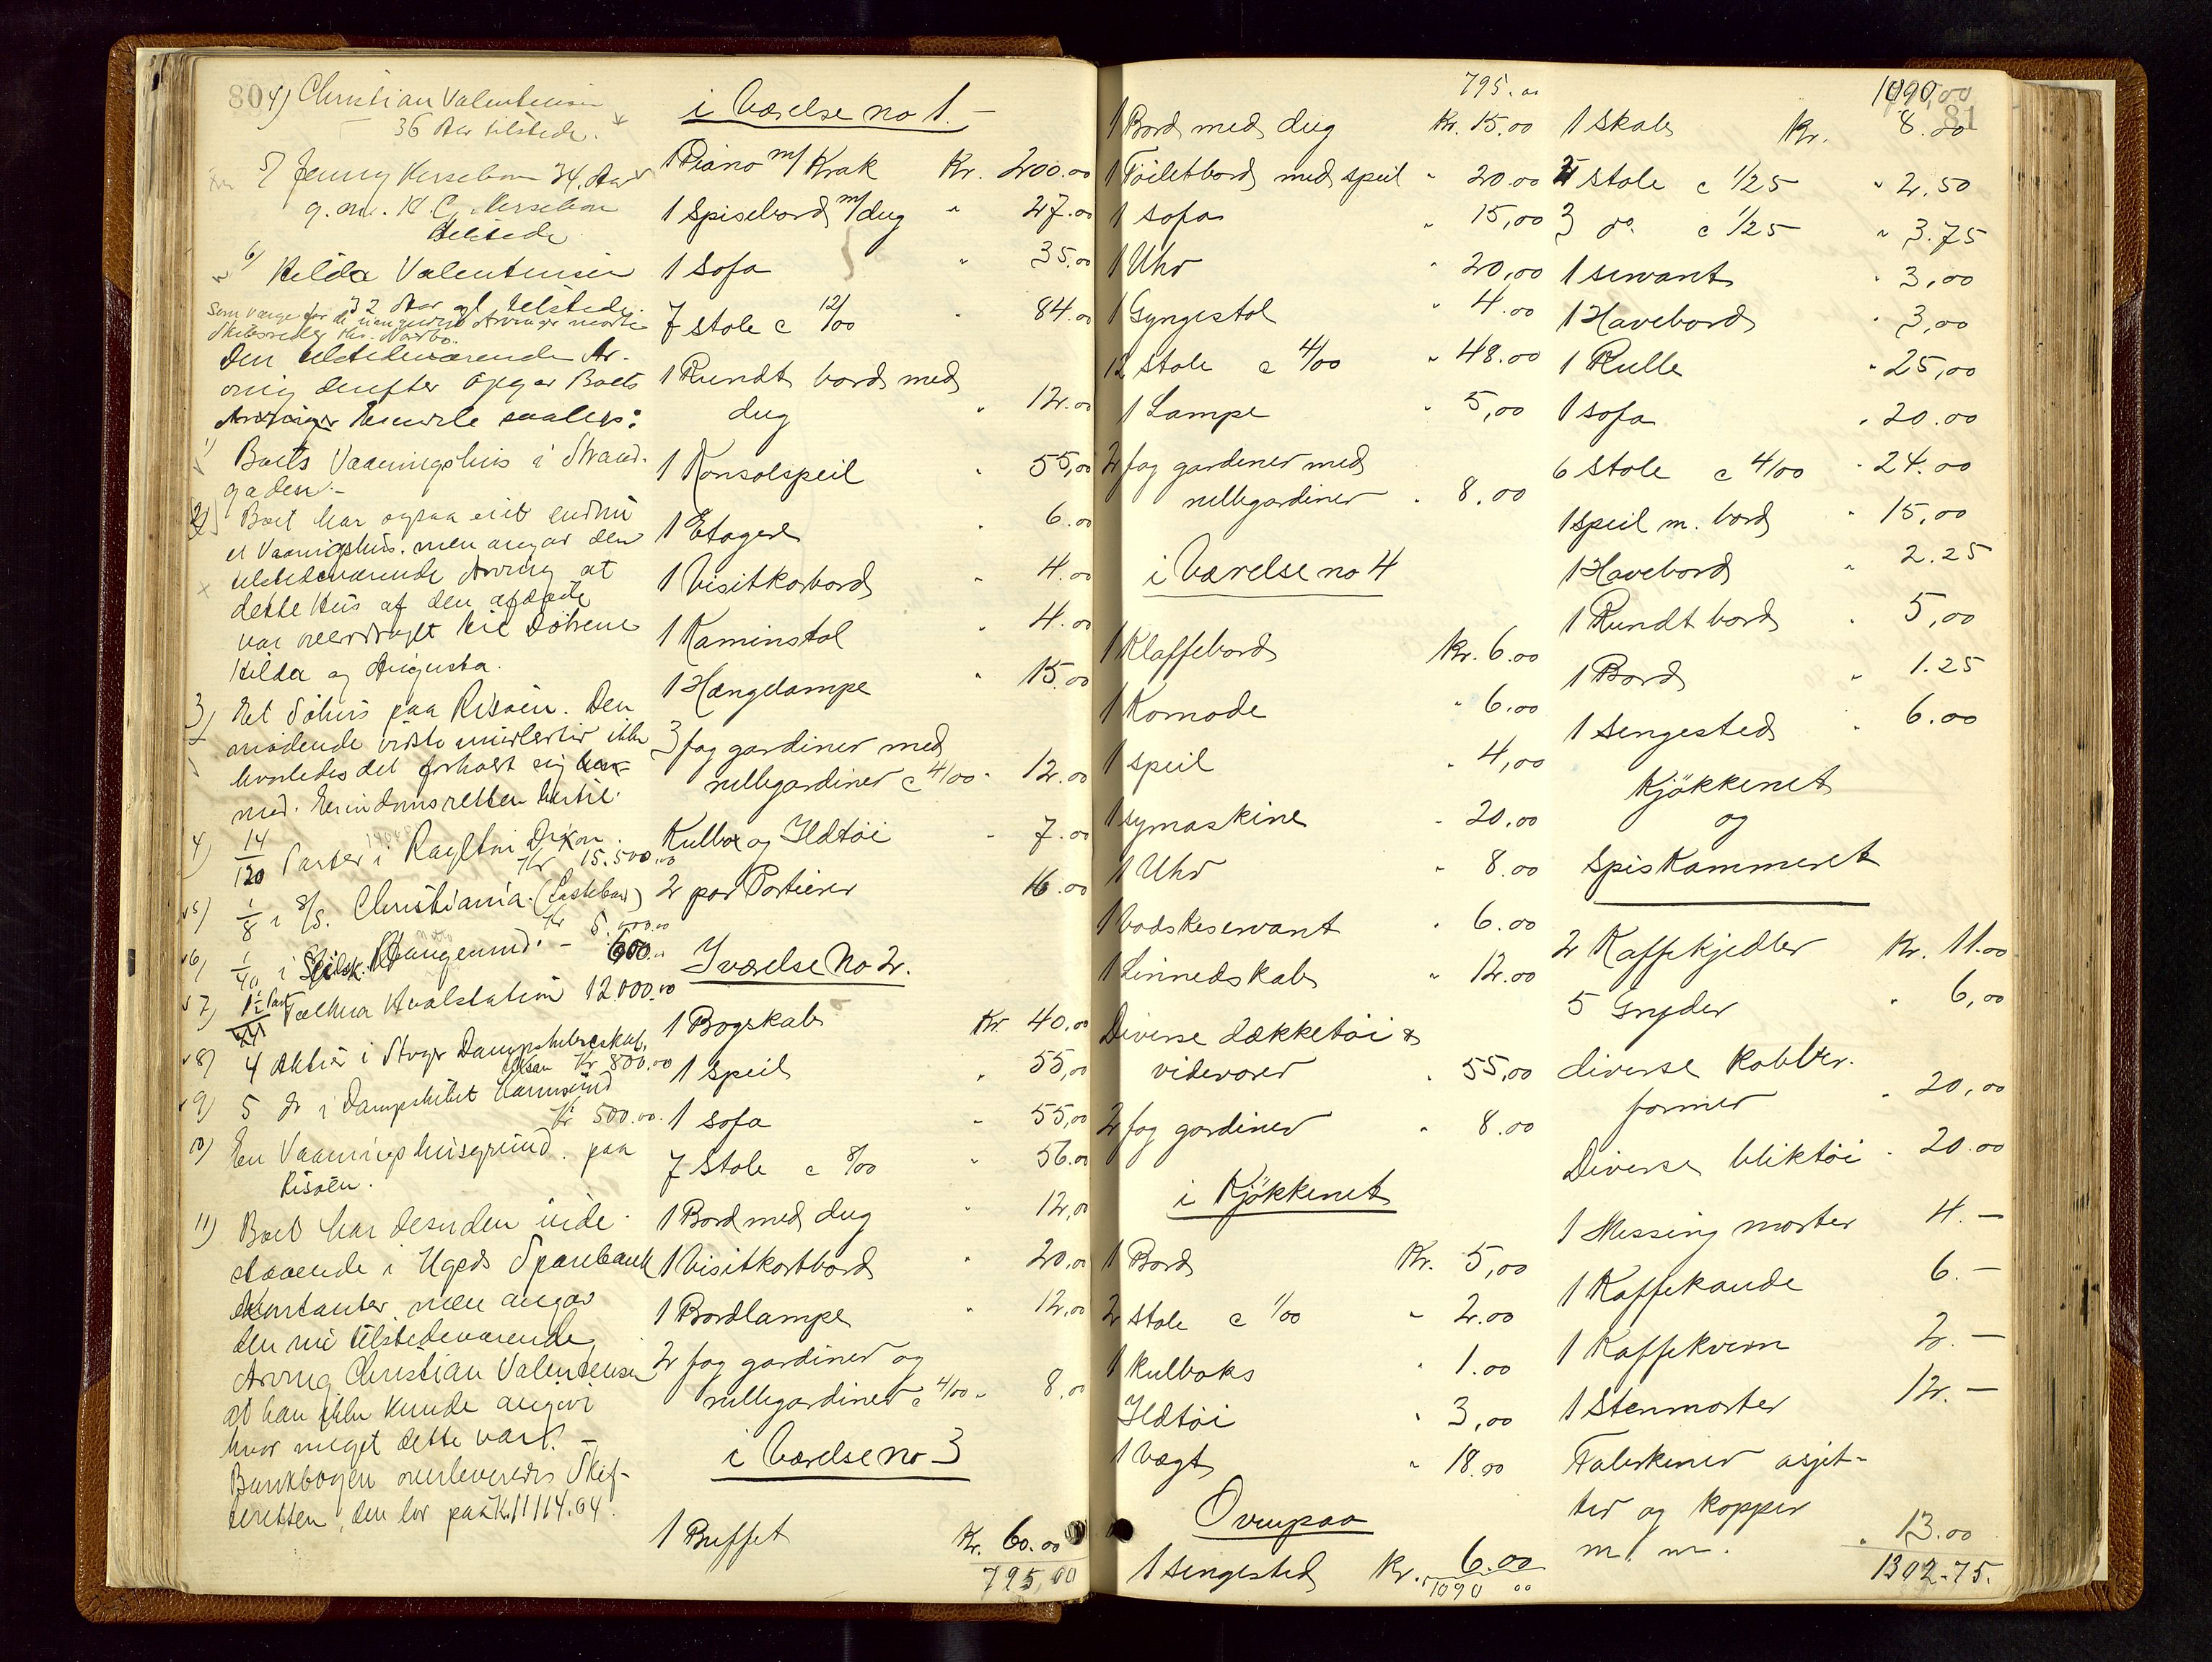 80
4) Christian Valentinsen
36 Aar tilstede.
5) Jenny Kersebom 34 Aar
g. m. H. C. Kersebom
tilstede
6) Hilda Valentinsen
32 Aar gl. tilstede.
som værge for de umyndige Arvinger mødte
Skibsreder Chr. Nærbo.
Den tilstedeværende Ar-
ving derefter opgav Boets
Eiendele saaledes:
1) Boets Vaaningshus i Strand-
gaden.-
2) Boet har ogsaa eiet endnu
et Vaaningshus. men angav den
tilstedeværende Arving at
dette Hus af den afdøde
var overdraget til Døtrene
Hilda og Augusta.
3) Et Søhus paa Risøen. Den
mødende vidste imidlertid ikke
hvorledes det forholdt sig
med Eiendomsretten hertil.
4) 14/120 Parter i Raylton Dixon
Kr 15.500.00
5) 1/8 i S/S. Christiania (Lastebaad)
Kr 5.000.00
6) 1/40 i Seilsk. - 600.-
7) Hvalstation 12.000.00
8) 4 Aktier i Dampskibsselskab
Kr 800.00
9) 5 do i Dampskibet Karmsund
Kr 500.00.
10) En Vaaningshusgrund paa
Risøen.
11) Boet har desuden inde-
staaende i Hgsds Sparebank
Kontanter, men angav
den nu tilstedeværende
Arving Christian Valentinsen
at han ikke kunde angive
hvor meget dette var. -
Bankbogen overleveredes Skif-
teretten, den lød paa Kr. 11114.04.
i Værelse no 1. -
1 Piano m/ Krak Kr. 200.00
1 Spisebord m/ dug " 27.00
1 Sofa " 35.00
7 Stole a 12/00 " 84.00
1 Rundt bord med
dug " 12.00
1 Konsolspeil " 55,00
1 Etagere " 6.00
1 Visitkorbord " 4.00
1 Kaminstol " 4.00
1 Hængelampe " 15.00
3 fag gardiner med
rullegardiner a 4/00 " 12.00
Kulbox og Ildtøi " 7.00
2 par Portierer 16.00
I værelse No 2.
1 Bogskab Kr 40.00
1 Speil " 55,00
1 Sofa " 55,00
7 Stole a 8/00 " 56.00
1 Bord med dug " 12,00
1 Visitkortbord " 20,00
1 Bordlampe " 12,00
2 fag gardiner og
rullegardiner a 4/00 " 8.00
i Værelse no 3
1 Buffet Kr. 60.00
795,00
81
795.00
1 Bord med dug Kr. 15.00
1 Toiletbord med speil " 20.00
1 Sofa " 15,00
1 Uhr " 20,00
1 Gyngestol " 4.00
12 Stole a 4/00 " 48.00
1 Lampe " 5,00
2 fag gardiner med
rullegardiner " 8.00
i Værelse no 4
1 Klaffebord Kr. 6.00
1 Komode " 6.00
1 Speil " 4,00
1 Symaskine " 20.00
1 Uhr " 8.00
1 Vaskeservant " 6.00
1 Linnedskab " 12.00
Diverse dækketøi &
videvarer " 55,00
2 fag gardiner " 8.00
i Kjøkkenet
1 Bord Kr. 5,00
2 Stole a 1/00 " 2.00
1 Kulboks " 1.00
Ildtøi " 3,00
1 Vægt " 18.00
Ovenpaa
1 Sengested Kr. 6.00
1090 00
1090,00
1 Skab Kr. 8.00
2 Stole a 1/25 " 2.50
3 do. a 1/25 " 3.75
1 Servant " 3,00
1 Havebord " 3,00
1 Rulle " 25,00
1 Sofa " 20.00
6 Stole a 4/00 " 24.00
1 Speil m. bord " 15,00
1 Havebord " 2.25
1 Rundt bord " 5,00
1 Bord " 1.25
1 Sengested " 6.00
Kjøkkenet
og
Spiskammeret
2 Kaffekjedler Kr. 11.00
5 Gryder " 6,00
diverse kobber-
former " 20,00
Diverse bliktøi " 20.00
1 Messing morter 4. -
1 Kaffekande 6. -
1 Kaffekvern 2. -
1 Stenmorter 12. -
Talerkener asjet-
ter og kopper
m. m. " 13.00
1302.75.